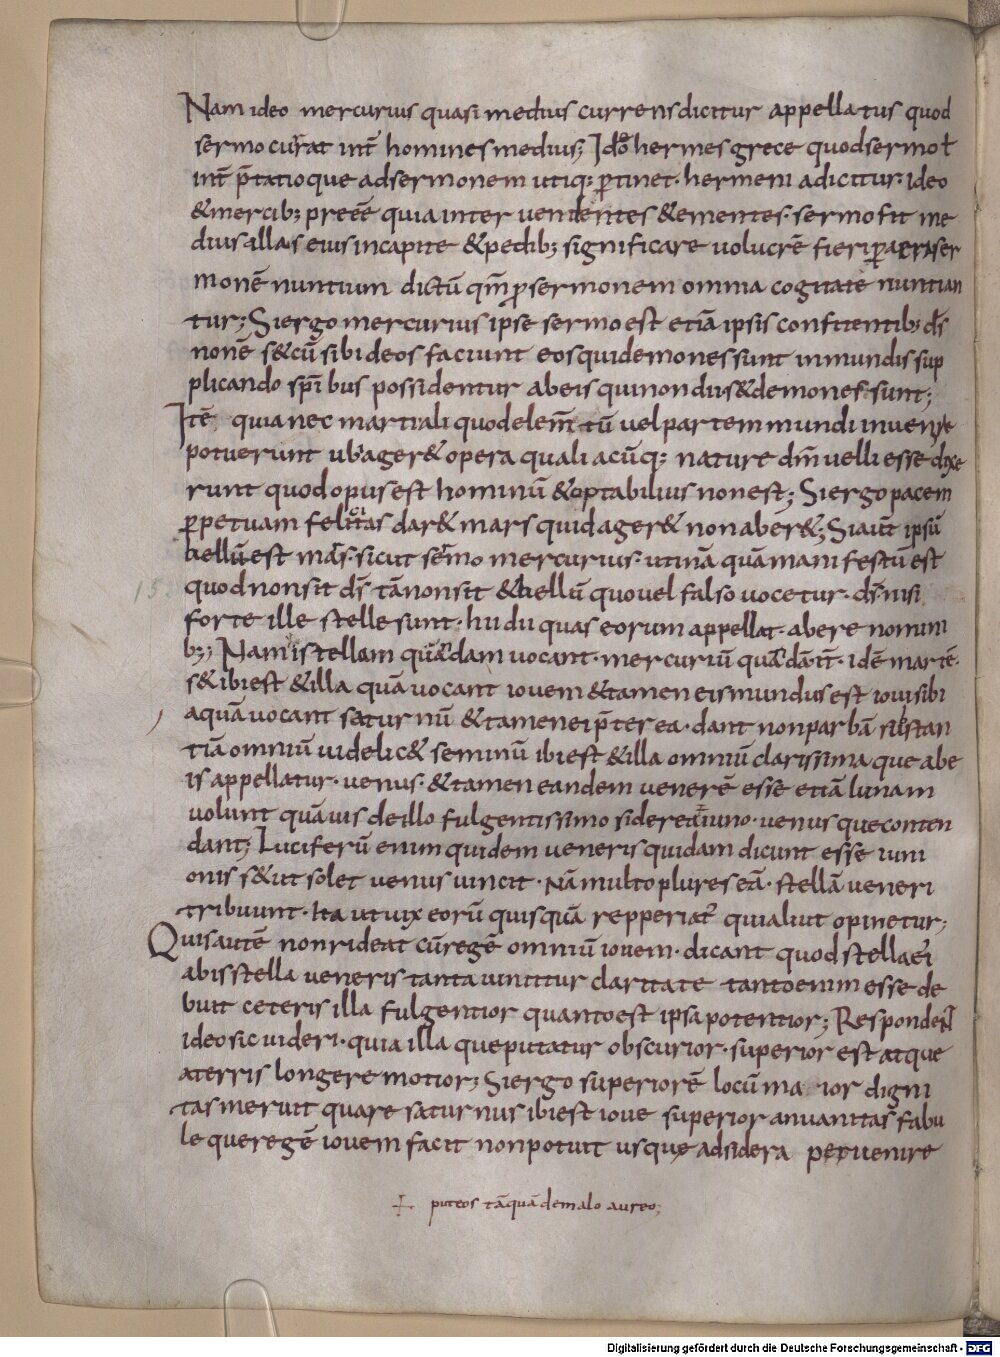 Nam ideo mercurius quasi medius currens dicitur appellatus quod
sermo currat int̄ homines medius; Ido hermes grece quod sermo ł
int̄ p̄tatio que ad sermonem utiq; ꝑtinet· hermeni a dicitur· ideo
& mercib; preeē quia inter vendentes & ementes· sermo fit me
dius allas eius in capite & pedib; significare uolucrē fieri ꝑ aera ser
monē nuntium dictū qm̄ ꝓ sermonem omnia cogitate nuntian
tur; Si ergo mercurius ipse sermo est etiā ipsis confitentib; ds̄
non ē s& cū sibi deos faciunt eos qui demones sunt inmundis sup
plicando sp̄i bus possidentur ab eis qui non dii s& demones sunt;
Itē quia nec marti ali quod elem̄tū uel partem mundi invenire
potuerunt ubi ager& opera quali acūq; nature dm̄ uelli esse dixe
runt quod opus est hominū & optabilius non est; Si ergo pacem
ꝑpetuam felicitas dar& mars quid ager& non aber&; Si aūt ipsū
bellū est mars· sicut sermo mercurius· utinā quā manifestū est
quod non sit ds̄ tā non sit & bellū quo uel falso uocetur· ds̄ nisi
forte ille stelle sunt· hii dii quas eorum appellat· abere nomini
b;; Nam is tellam quādam uocant· mercuriū quādā it̄· idē martē·
s& ibi est & illa quā uocant iouem & tamen eis mundus est ioui sibi
a quā uocant saturnū & tamen ei p̄terea· dant non parbā substan
tiā omniū uidelic& seminū ibi est & illa omniū clarissima que abe
is appellatur· venus· & tamen eandem venerē esse etiā lunam
uolunt quāuis de illo fulgentissimo sidere iuno· venus que conten
dant; Luciferū enim quidem veneris quidam dicunt esse iuni
onis s& ut solet venus uincit· Nā multo plures eā· stellā ueneri
tribuunt· Ita ut uix eorū quisquā repperiat᷑ qui aliut opinetur;
Quis autē non rideat cū regē omniū iouem· dicant quod stella ei᷑
ab is stella veneris tanta uintitur claritate tanto enim esse de
buit ceteris illa fulgentior quanto est ipsa potentior; Respondent
ideo sic uideri· quia illa que putatur obscurior· superior est atque
a terris longe remotior; Si ergo superiorē locū ma ior digni
tas meruit quare saturnus ibi est ioue superior an uanitas fabu
le que regē iouem facit non potuit usque ad sidera pervenire
puteos tāquā de malo aureo;
Digitalisierung gefördert durch die Deutsche Forschungsgemeinschaft - DFG